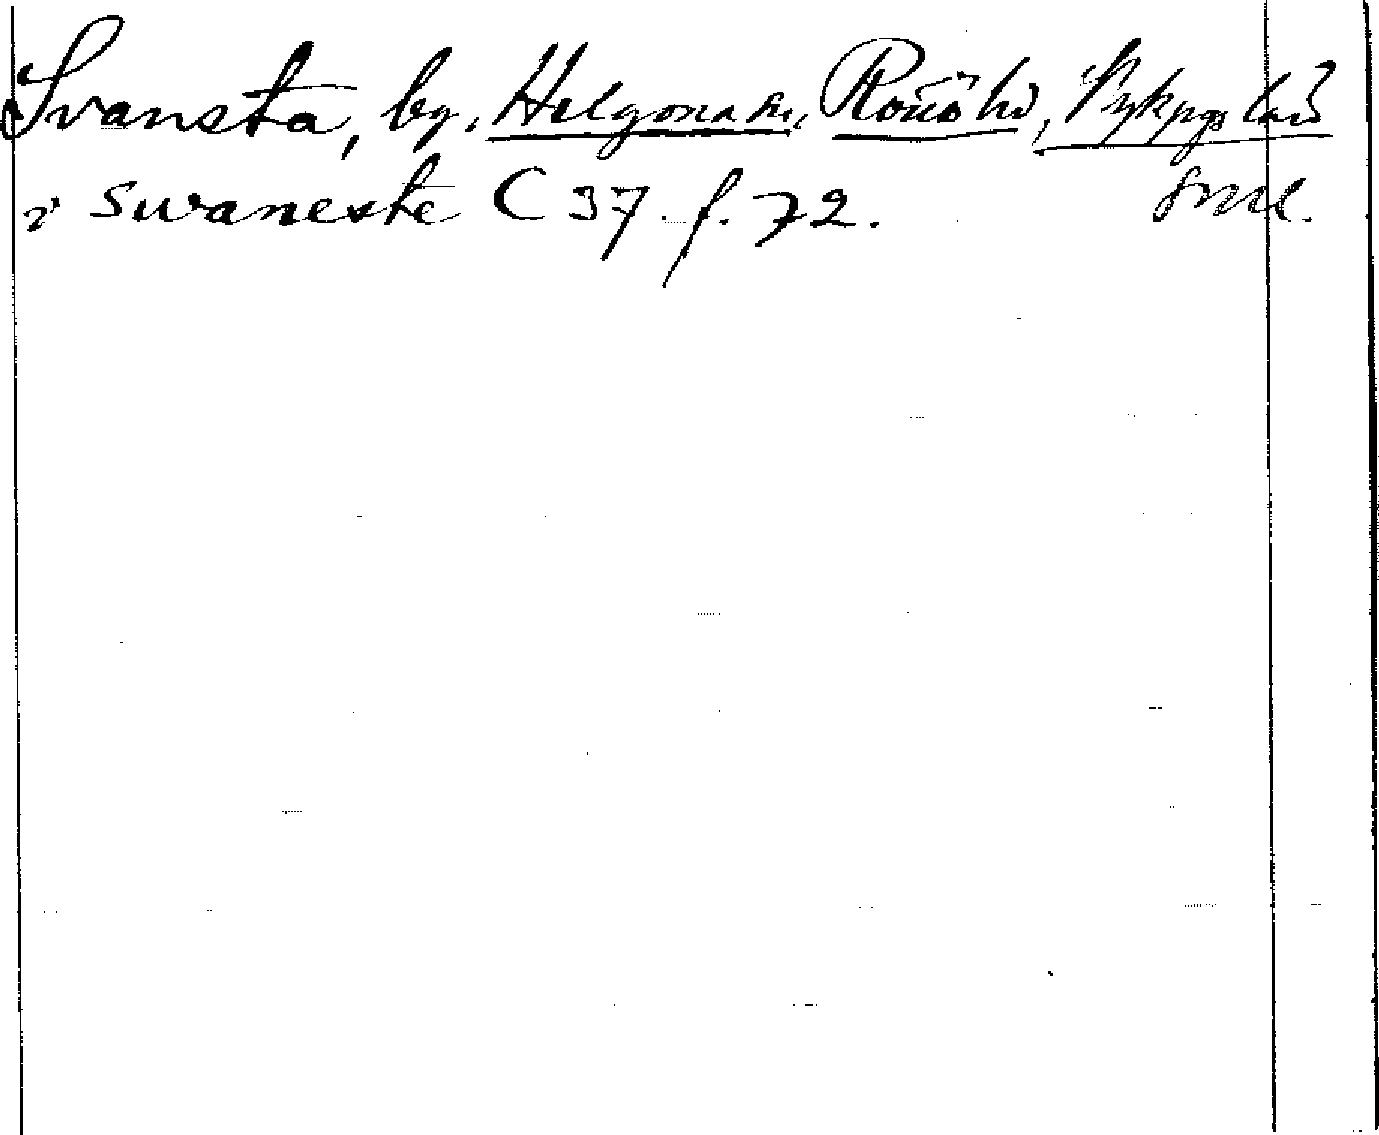 Svansta, by, Helgona sn, Rönö hd, Nyköpgs län
i swaneste C 37. f. 72. Sml.